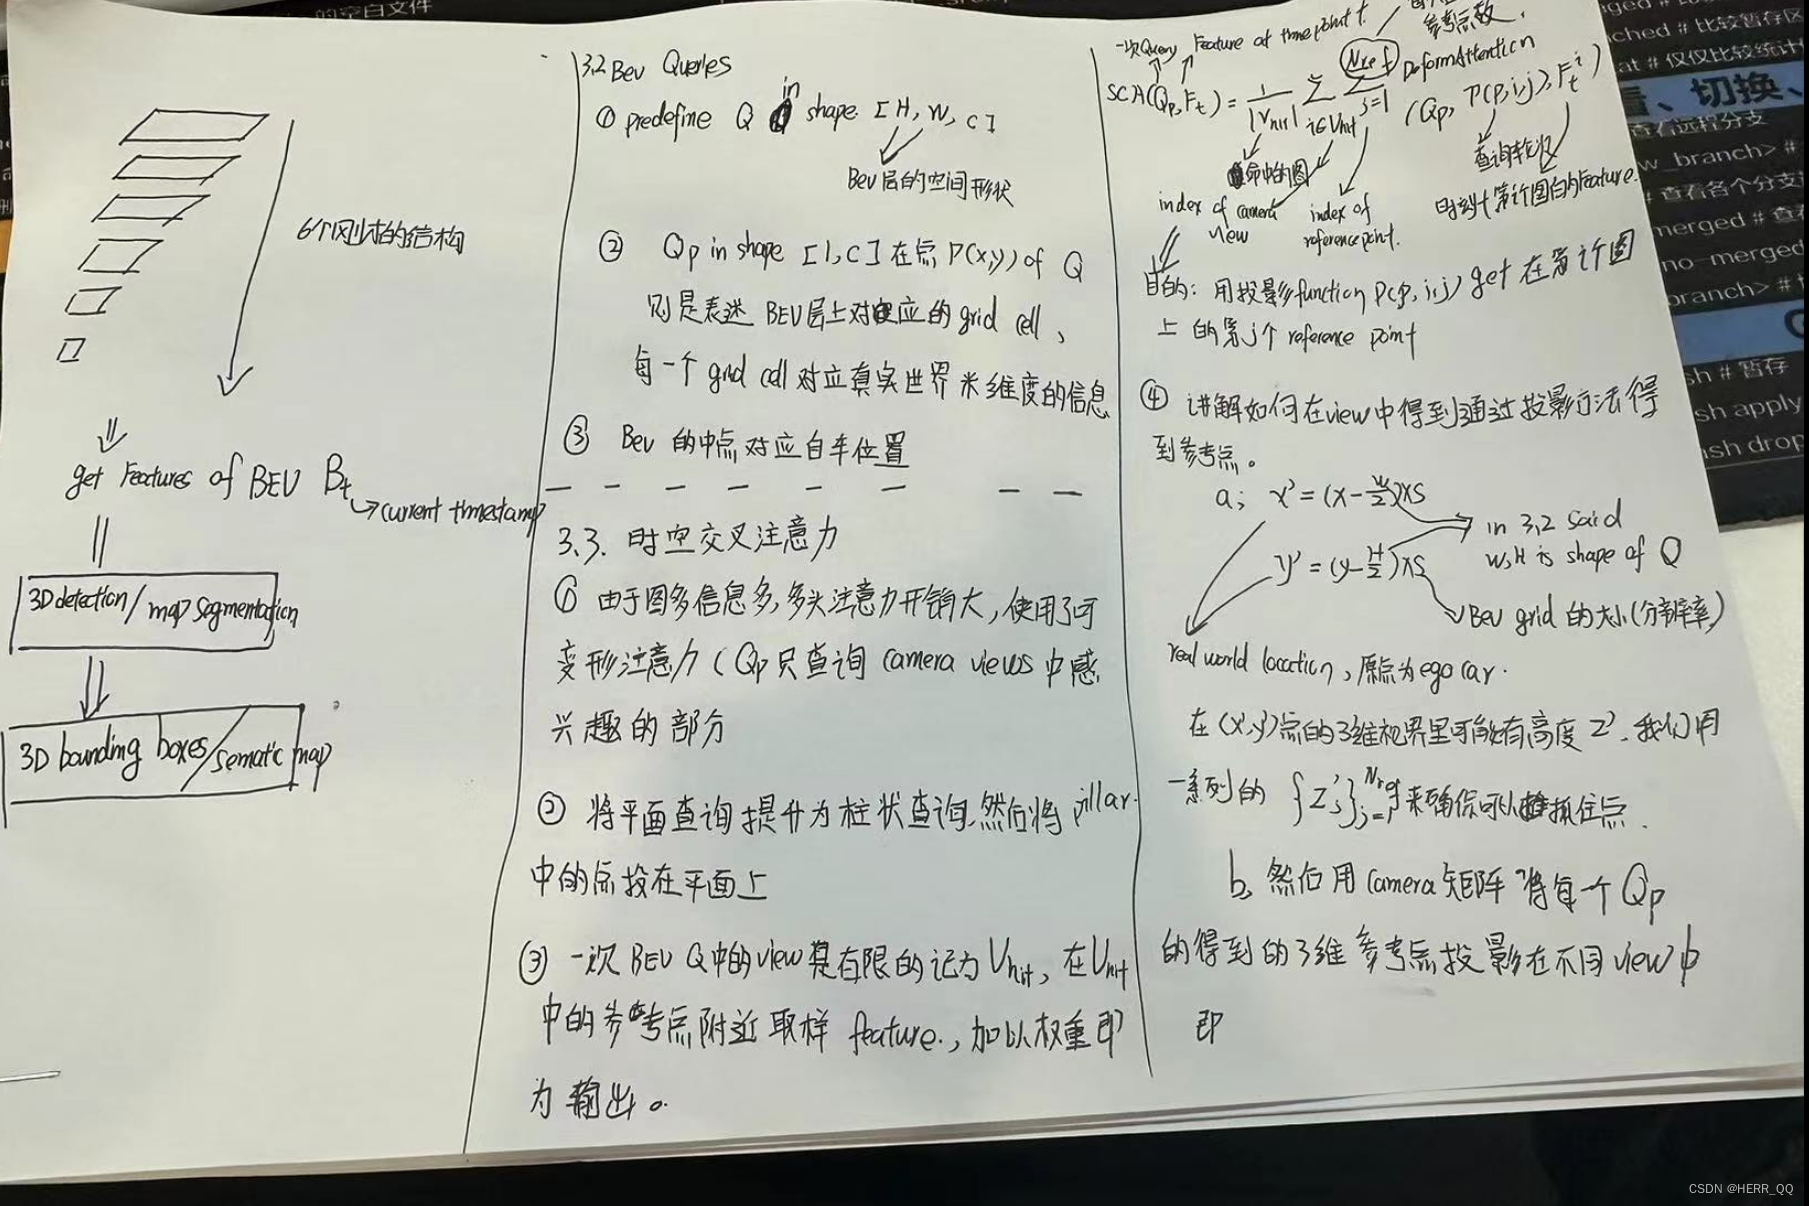 的空白文件
6个刚才的结构
get Features of BEV Bt
current timestamp
3D detection/map segmentation
3D bounding boxes/sematic map
3.2 Bev Queries
① predefine Q in shape. [H, W, C]
Bev层的空间形状
② Qp in shape [1, C] 在点 P(x,y) of Q
则是表述 BEV层上对应的 grid cell,
每一个 grid cell 对应真实世界米维度的信息
③ Bev 的中点对应自车位置
3.3. 时空交叉注意力
① 由于图多信息多,多头注意力开销大,使用了可
变形注意力(Qp只查询 camera views 中感
兴趣的部分
② 将平面查询提升为柱状查询,然后将 pillar.
中的点投在平面上
③ 一次 BEV Q中的view是有限的记为 Vhit, 在Vhit
中的参考点附近取样 feature., 加以权重即
为输出。
一次Query Feature at timepoint t.
参考点数.
SCA(Qp, Ft) = 1/|Vhit| Σ i∈Vhit Σ j=1 Nref DeformAttention
(Qp, P(p,i,j), Ft^i)
命中的图
查询轮次
时刻t第i个图的Feature.
index of camera view
index of reference point.
目的: 用投影function P(p,i,j) get 在第i个图
上的第j个 reference point
④ 讲解如何在view中得到通过投影方法得
到参考点。
a; x' = (x-W/2)×S
y' = (y-H/2)×S
in 3.2 said
W,H is shape of Q
Bev grid 的大小(分辨率)
real world location, 原点为ego car.
在(x',y')点的3维视界里可能有高度 z'. 我们用
一系列的 {Z'j}j=1 Nref 来确保可以抓住点.
b, 然后用 camera 矩阵将每一个 Qp
的得到的3维参考点投影在不同view中
即
# 比较暂存区
# 仅仅比较统计
切换、
查看远程分支
w_branch> #
# 查看各个分支
merged # 查看
no-merged
branch> #
sh # 暂存
sh apply
sh drop
CSDN @HERR_QQ